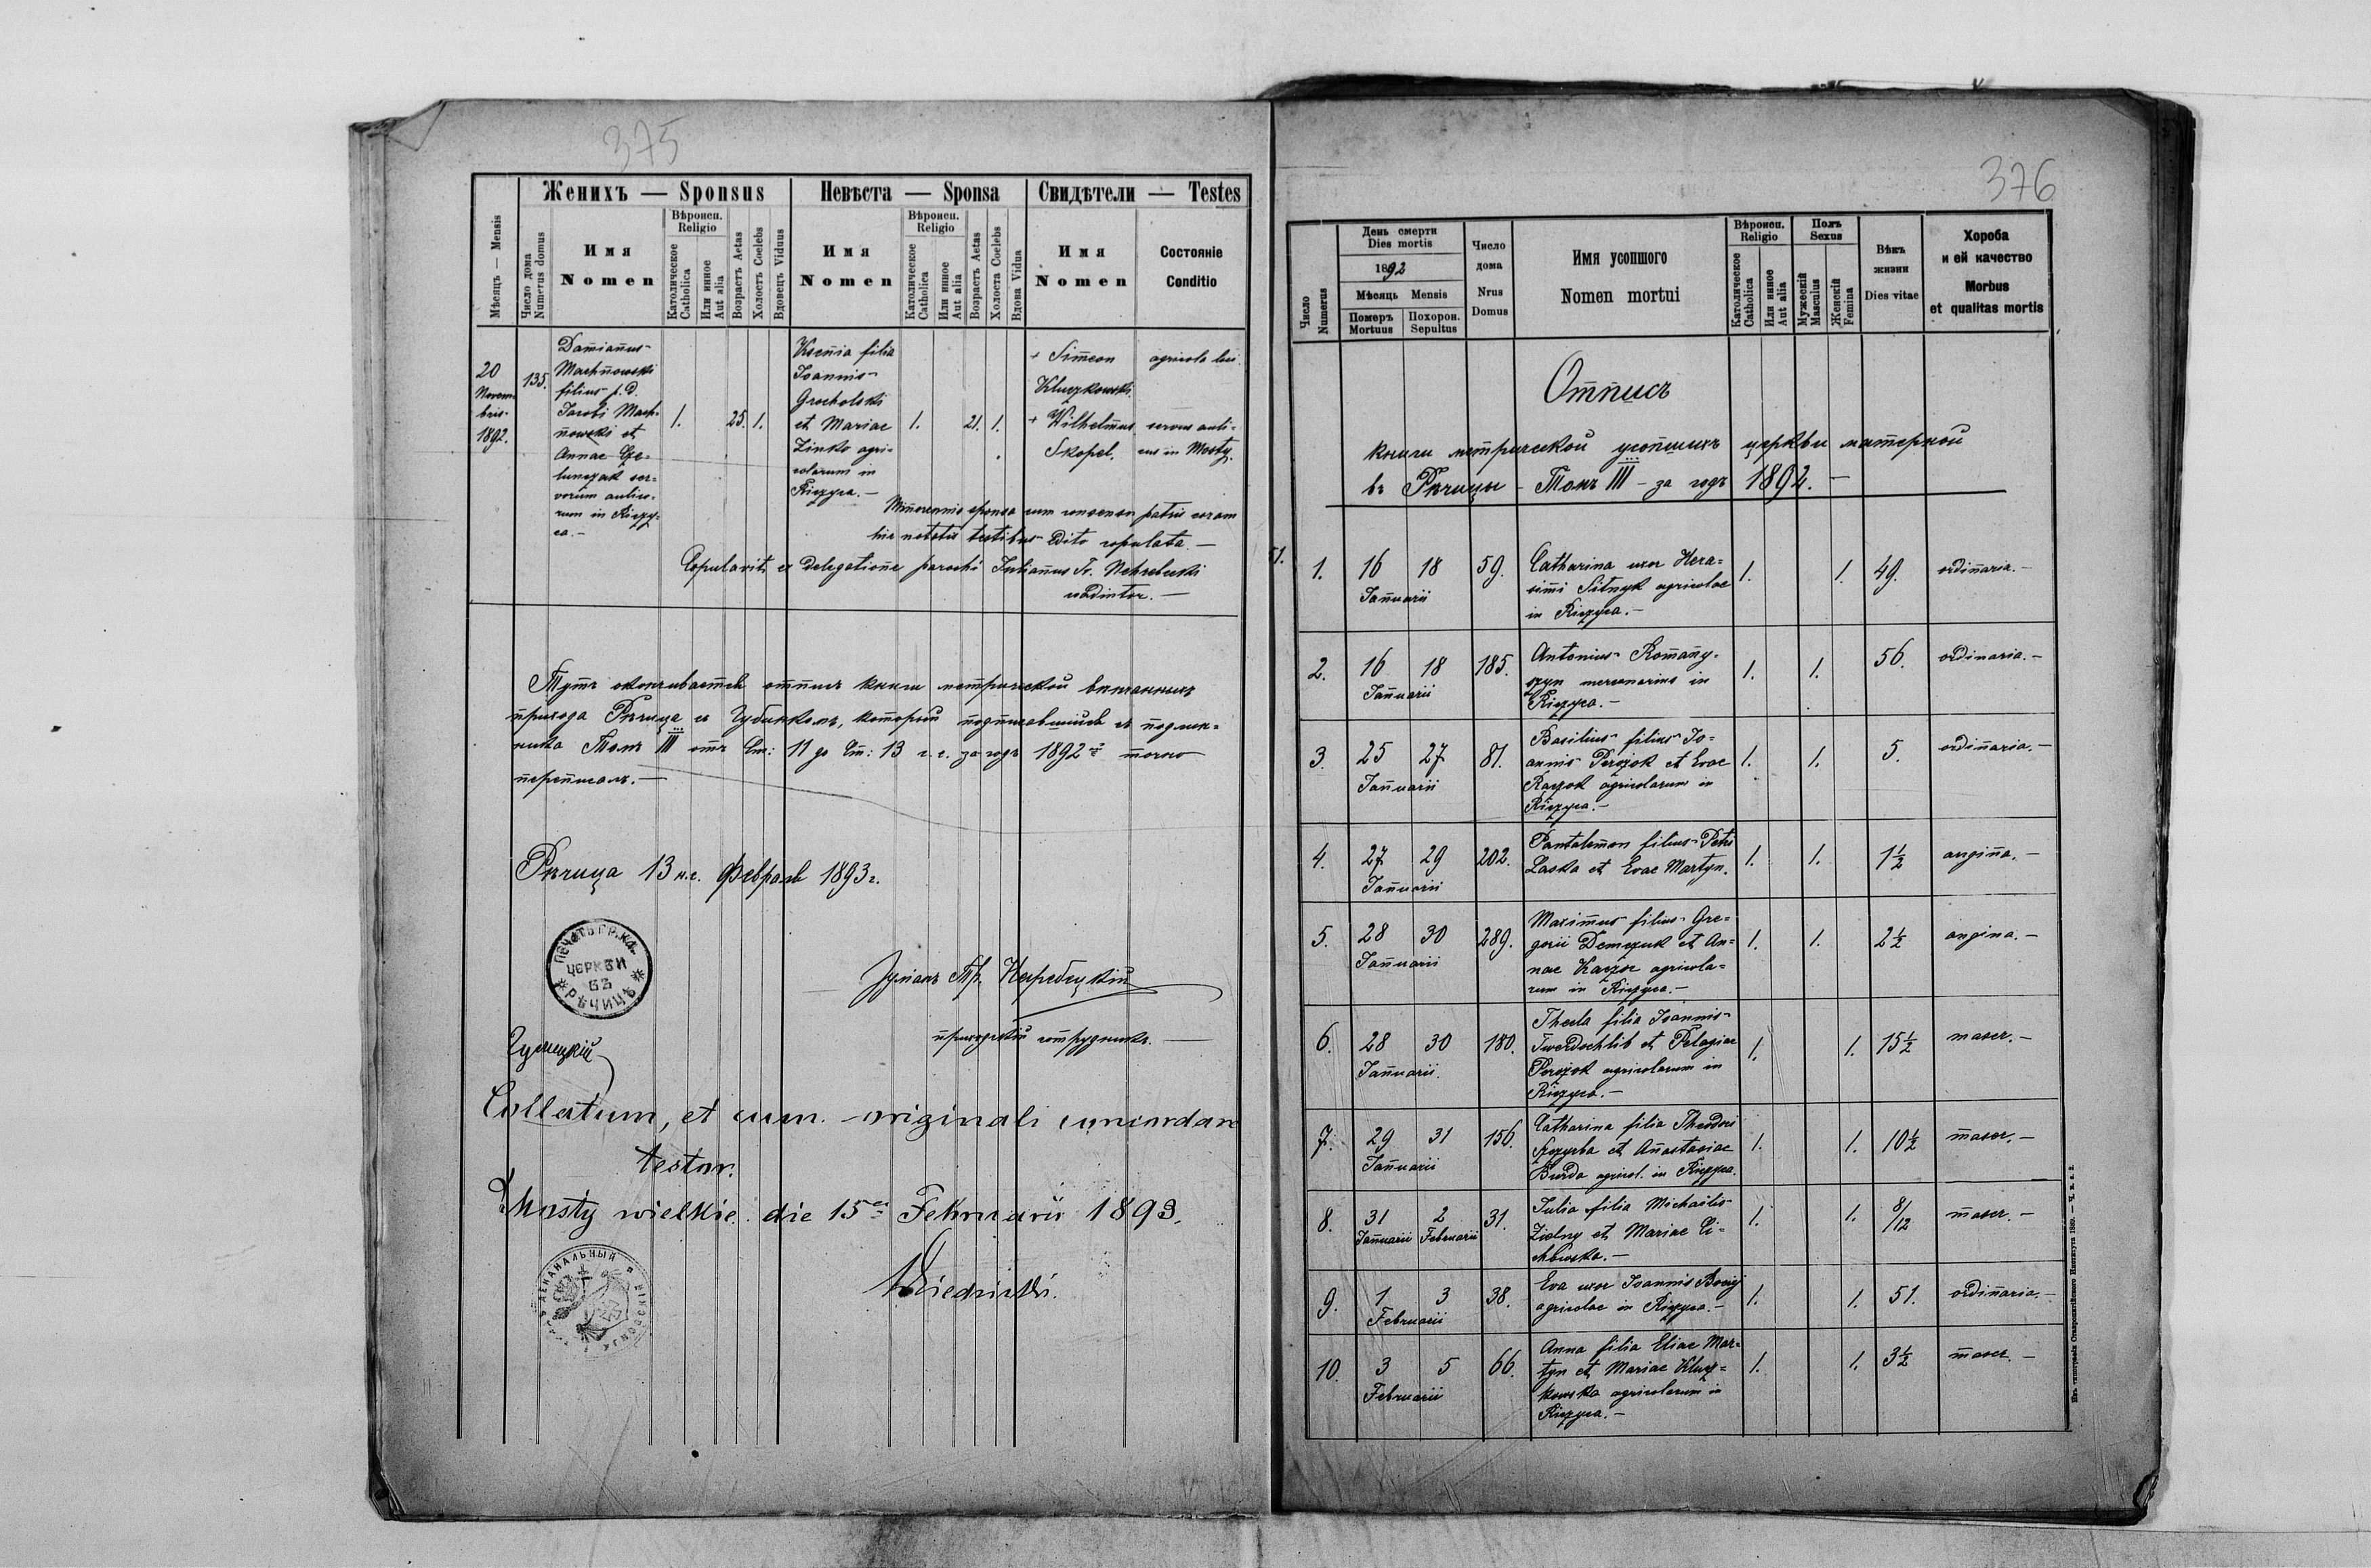 375
Женихъ — Sponsus
Невѣста — Sponsa
Свидѣтели — Testes
Мѣсяць — Mensis
Число дома
Numerus domus
Имя
Nomen
Вѣроисп.
Religio
Католическое
Catholica
Или инное
Aut alia
Возрастъ Aetas
Холостъ Coelebs
Вдовецъ Viduus
Имя
Nomen
Вѣроисп.
Religio
Католическое
Catholica
Или инное
Aut alia
Возрастъ Aetas
Холоста Coelebs
Вдова Vidua
Имя
Nomen
Состояніе
Conditio
20
Novem-
bris
1892.
135.
Damianus
Machnowski
filius p.d.
Jacobi Mach-
nowski et
Annae
ser-
vorum aulico-
rum in Rieczy-
ca. —
1.
25.
1.
Ksenia filia
Ioannis
Grocholski
et Mariae
Zinko agri-
colarum in
Rieczyca. —
1.
21.
1.
+ Simeon
Kluczkowski.
agricola loci.
+ Wilhelmus
Skopel.
servus auli-
cus in Mosty.
Minorennis sponsa cum consensu patris coram
hic notatis testibus edito copulata. —
Copulavit ex delegatione parochi Julianus Tr. Nehrebecki
coadiutor. —
Тутъ оканчивается отписъ книги метрической вѣнчанныхъ
прихода Рѣчица съ Губинкомъ, который подписавшійся съ подлин-
ника Томъ III отъ Ст: 11 до Ст: 13 г.г. за годъ 1892 точно
переписалъ. —
Рѣчица 13 н.с. Февраля 1893 г.
ПЕЧАТЬ ГР. КА.
ЦЕРКВИ
ВЪ
РѢЧИЦѢ
Юліанъ Тр. Негребецкій
приходскій сотрудникъ. —
Collatum, et cum originali concordare
testor.
Mosty wielkie die 15 Februarii 1893.
376
Число
Numerus
День смерти
Dies mortis
1892
Мѣсяць Mensis
Померъ
Mortuus
Похорон.
Sepultus
Число
дома
Nrus
Domus
Имя усопшого
Nomen mortui
Вѣроисп.
Religio
Католическое
Catholica
Или инное
Aut alia
Полъ
Sexus
Мужескій
Masculus
Женскій
Femina
Вѣкъ
жизни
Dies vitae
Хороба
и ей качество
Morbus
et qualitas mortis
Отписъ
книги метрической усопшихъ церкви матерной
въ Рѣчицы - Томъ III - за годъ 1892. —
1. 16 18 59. Catharina uxor Hera- 1. 1. 49. ordinaria. —
Januarii simi Sitnyk agricolae
in Rieczyca. —
2. 16 18 185. Antonius Romany- 1. 1. 56. ordinaria. —
Januarii szyn mercenarius in
Rieczyca. —
3. 25 27 81. Basilius filius Jo- 1. 1. 5. ordinaria. —
Januarii annis Porozok et Evae
Raczok agricolarum in
Rieczyca. —
4. 27 29 202. Pantalemon filius Petri 1. 1. 1½ angina. —
Januarii Laska et Evae Martyn.
5. 28 30 289. Maximus filius Gre- 1. 1. 2½ angina. —
Januarii gorii Demczuk et An-
nae agricola-
rum in Rieczyca. —
6. 28 30 180. Thecla filia Ioannis 1. 1. 15½ macer. —
Januarii. Twerdochlib et Pelagiae
Porozok agricolarum in
Rieczyca. —
7. 29 31 156. Catharina filia Theodori 1. 1. 10½ macer. —
Januarii Szczyrba et Anastasiae
Burda agricol. in Rieczyca.
8. 31 2 31. Julia filia Michaelis 1. 1. 8/12 macer. —
Januarii Februarii Zielny et Mariae
9. 1 3 38. Eva uxor Ioannis 1. 1. 51. ordinaria. —
Februarii agricolae in Rieczyca. —
10. 3 5 66. Anna filia Eliae Mar- 1. 1. 3½ macer. —
Februarii tyn et Mariae Klucz-
kowska agricolarum in
Rieczyca. —
Изъ типографіи Ставропигійского Института 1889.